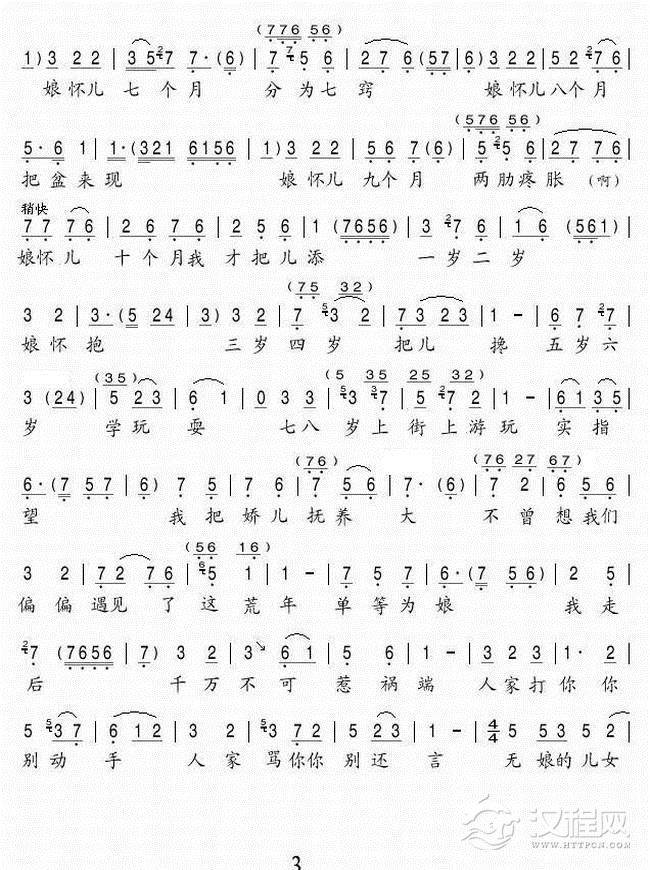 (7 7 6 5 6)
1) 3 2 2 | 3 5 2 7 7·(6) | 7 7 5 6 | 2 7 6 (5 7 | 6) 3 2 2 | 5 2 7 6 |
娘怀儿 七 个 月 分 为 七 窍 娘怀儿 八 个 月
(5 7 6 5 6)
5· 6 1 | 1·(3 2 1 6 1 5 6 | 1) 3 2 2 | 5 6 7 (6) | 5 2 5 6 | 2 7 7 6 |
把 盆 来 现 娘 怀 儿 九 个 月 两 肋 疼 胀 (啊)
稍快
7 7 7 6 | 2 6 7 6 | 2 5 6 | 1 (7 6 5 6) | 3 2 7 6 | 1 6 (5 6 1) |
娘怀 儿 十 个 月 我 才 把 儿 添 一 岁 二 岁
(7 5 3 2)
3 2 | 3·(5 2 4 | 3) 3 2 | 7 5 3 2 | 7 2 3 | 1 - | 6 7 2 7 |
娘 怀 抱 三 岁 四 岁 把 儿 搀 五 岁 六
(3 5) (5 35 25 32)
3 (2 4) | 5 2 3 | 6 1 | 0 3 3 | 5 3 3 7 | 5 2 7 2 | 1 - | 6 1 3 5 |
岁 学 玩 耍 七 八 岁 上 街 上 游 玩 实 指
(7 6) (76 27 67)
6·(7 | 5 7 | 6) 7 5 | 6 7 | 7 5 | 7 5 6 | 7·(6) | 7 2 | 6 5 6 |
望 我 把 娇 儿 抚 养 大 不 曾 想 我们
(5 6 1 6)
3 2 | 7 2 7 6 | 6 5 1 | 1 - | 7 5 7 | 6·(7 | 5 6) | 2 5 |
偏 偏 遇见 了 这 荒 年 单 等 为 娘 我 走
2 7 (7 6 5 6 | 7) 3 2 | 3 6 1 | 5 5 | 1 - | 3 2 3 | 1· 2 |
后 千 万 不 可 惹 祸 端 人 家 打 你 你
5 5 3 7 | 6 1 2 | 1 2 | 5 3 7 2 | 5 2 3 | 1 - | 4/4 5 5 3 5 2 |
别 动 手 人 家 骂 你你 别 还 言 无 娘的 儿 女
3
汉程网
WWW.HTTPCN.COM